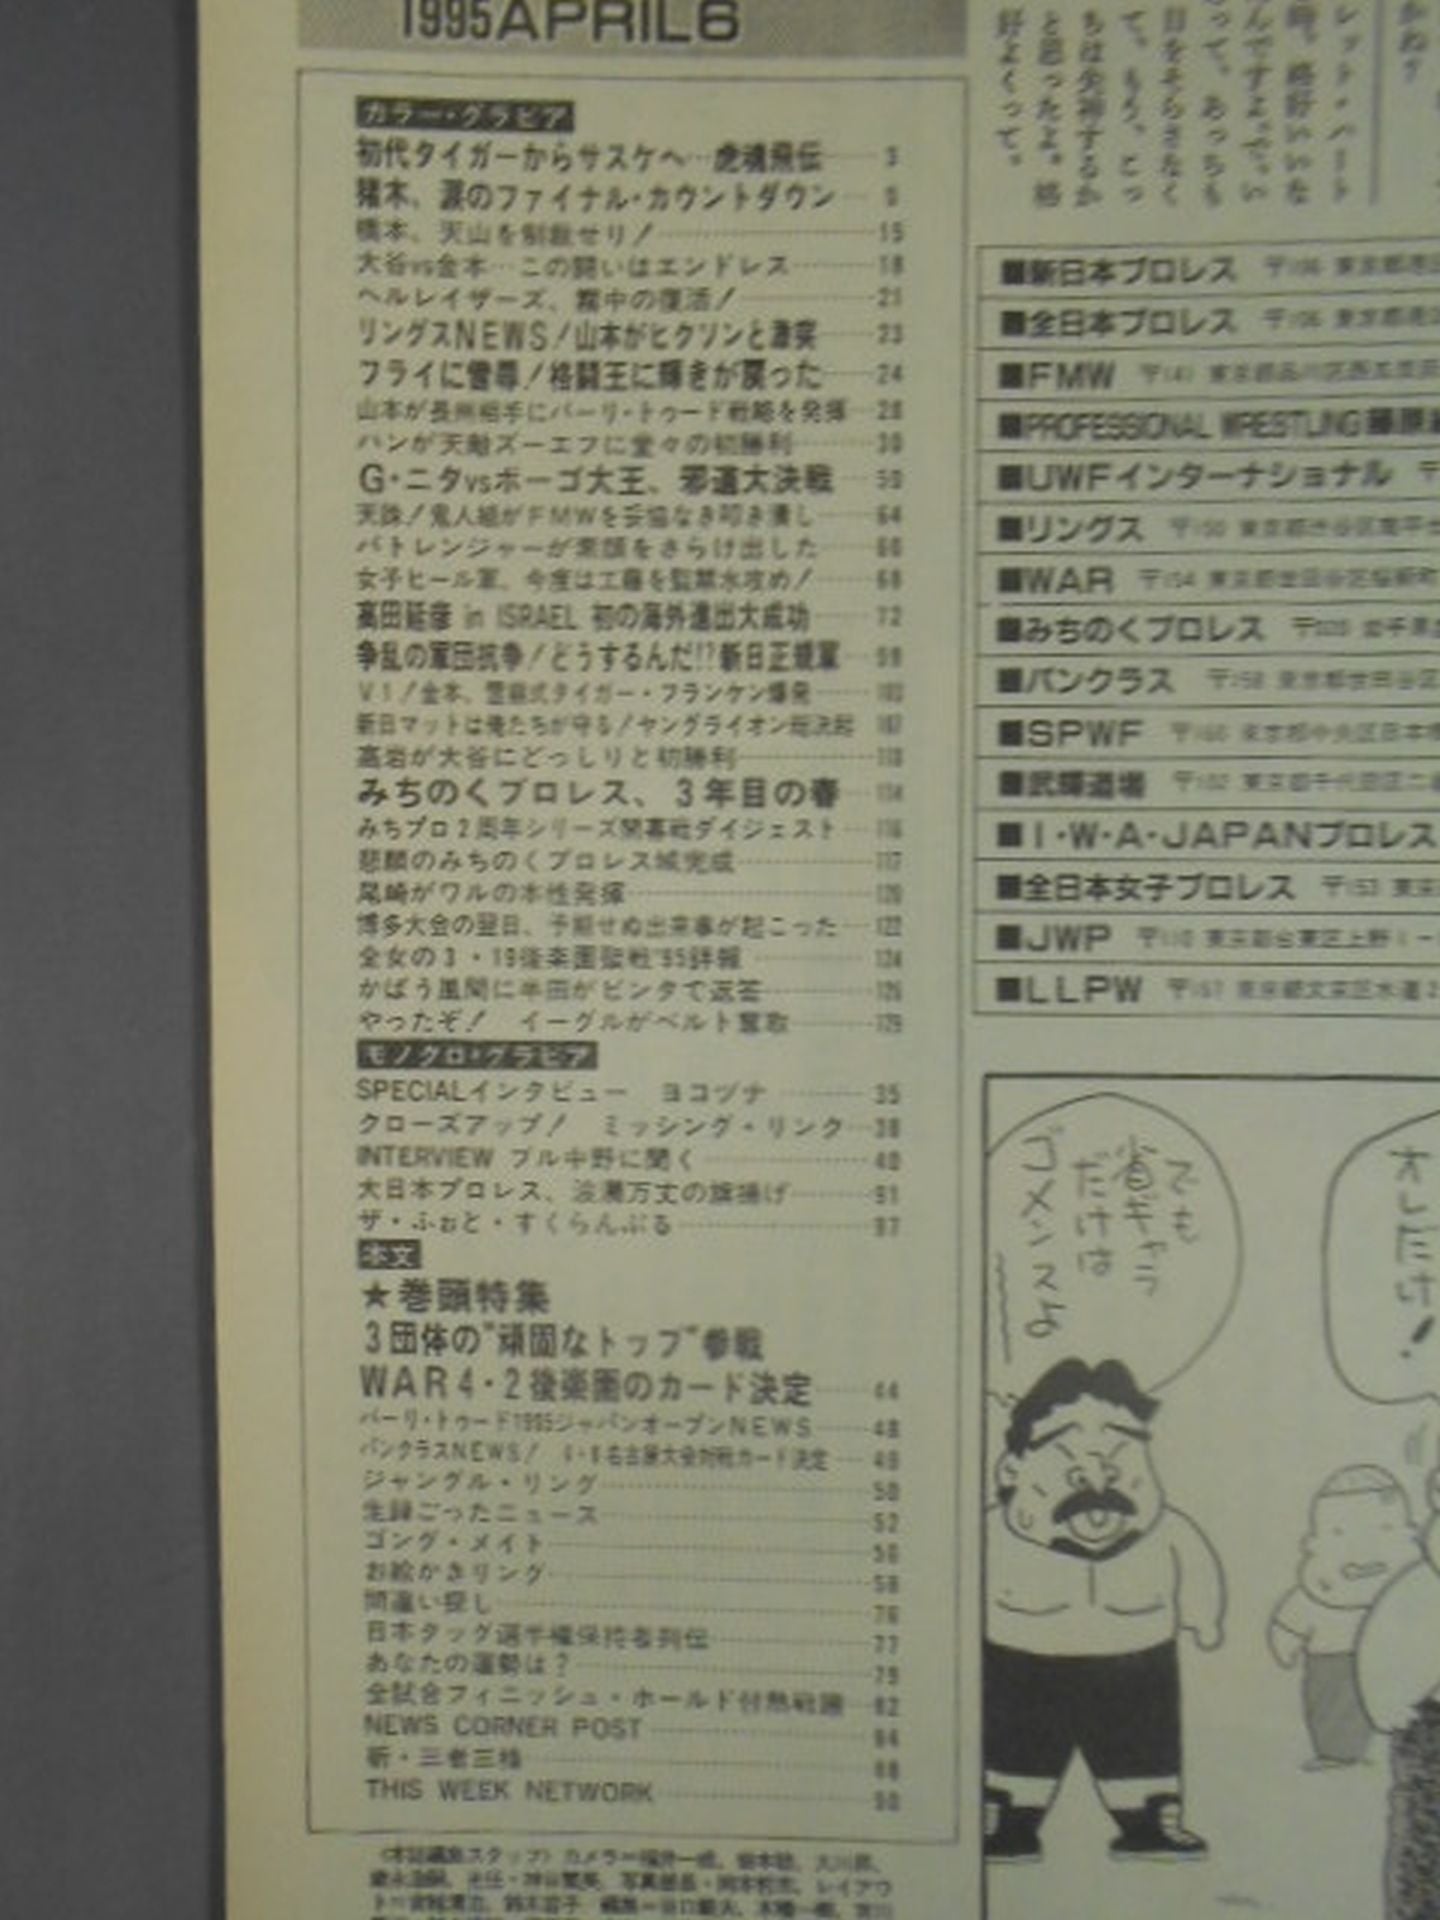 1995 APRIL 6
カラー・グラビア
初代タイガーからサスケへ…虎魂飛伝 3
猪木、涙のファイナル・カウントダウン
橋本、天山を制裁せり! 15
大谷vs金本…この闘いはエンドレス 18
ヘルレイザーズ、霧中の復活! 21
リングスNEWS!山本がヒクソンと激突 23
フライに雪辱!格闘王に輝きが戻った 24
山本が長州相手にバーリ・トゥード戦略を発揮 28
ハンが天敵ズーエフに堂々の初勝利 30
G・ニタvsポーゴ大王、邪道大決戦
天誅!鬼人組がFMWを妥協なき叩き潰し 64
パトレンジャーが素顔をさらけ出した
女子ヒール軍、今度は工藤を監禁水攻め! 68
高田延彦 in ISRAEL 初の海外進出大成功 72
争乱の軍団抗争!どうするんだ!?新日正規軍
V1!金本、雪崩式タイガー・フランケン爆発
新日マットは俺たちが守る!ヤングライオン総決起
高岩が大谷にどっしりと初勝利
みちのくプロレス、3年目の春 114
みちプロ2周年シリーズ開幕戦ダイジェスト 116
悲願のみちのくプロレス城完成 117
尾崎がワルの本性発揮 120
博多大会の翌日、予期せぬ出来事が起こった 122
全女の3・19後楽園 '95詳報 124
かばう風間に半田がビンタで返答
やったぞ! イーグルがベルト奪取 129
モノクロ・グラビア
SPECIALインタビュー ヨコヅナ 35
クローズアップ! ミッシング・リンク 38
INTERVIEW ブル中野に聞く 40
大日本プロレス、波瀾万丈の旗揚げ 91
ザ・ふぉと・すくらんぶる 97
本文
★巻頭特集
3団体の"頑固なトップ"参戦
WAR4・2後楽園のカード決定 44
バーリ・トゥード1995ジャパンオープンNEWS 48
パンクラスNEWS! 名古屋大会対戦カード決定 49
ジャングル・リング 50
生録ごったニュース 52
ゴング・メイト
お絵かきリング 58
間違い探し 76
日本タッグ選手権保持者列伝 77
あなたの運勢は? 79
全試合フィニッシュ・ホールド付熱戦譜 82
NEWS CORNER POST 84
新・三者三様 88
THIS WEEK NETWORK 90
〈本誌編集スタッフ〉カメラ
かね?
レット・ハート
時、格好いいな
んですよ。で、い
って、あっちも
目をそらさなく
て、もう、とっ
ちは失神するか
と思ったよ。格
好よくって。
■新日本プロレス 〒106 東京都港区
■全日本プロレス 〒106 東京都港区
■FMW 〒141 東京都品川区西五反田
■PROFESSIONAL WRESTLING藤原組
■UWFインターナショナル 〒
■リングス 〒150 東京都渋谷区南平台
■WAR 〒154 東京都世田谷区桜新町
■みちのくプロレス 〒020 岩手県
■パンクラス 〒158 東京都世田谷区
■SPWF 〒 東京都中央区日本橋
■武輝道場 〒102 東京都千代田区二番
■I・W・A・JAPANプロレス
■全日本女子プロレス 〒153 東京
■JWP 〒110 東京都台東区上野1-
■LLPW 〒 東京都文京区水道2
でも
省ギャラ
だけは
ゴメンスよ
オレだけ!